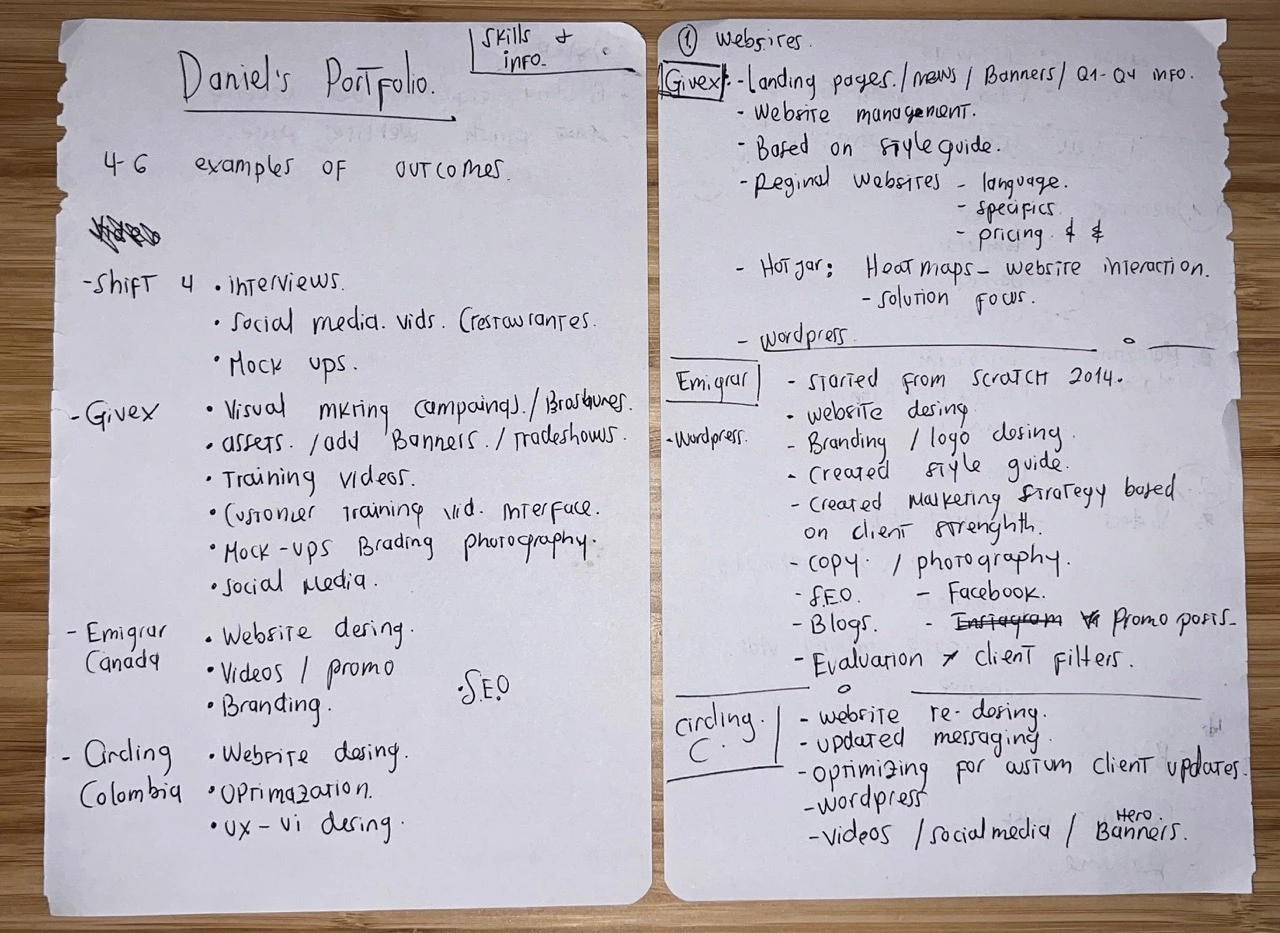 Skills &
info.
Daniel's Portfolio.
4-6 examples of outcomes.
- Shift 4 • interviews.
• Social media. vids. (restaurantes.
• Mock ups.
- Givex • Visual mkring campaings. / Broshures.
• assets. / add Banners. / Tradeshows.
• Training videos.
• Customer Training vid. interface.
• Mock-ups Brading photography.
• Social Media.
- Emigrar • Website desing.
Canada • Videos / promo
• S.E.O
• Branding.
- Circling • Website desing.
Colombia • Oprimazation.
• UX-Ui desing.
① Websites.
Givex: - Landing pages. / news / Banners / Q1-Q4 info.
- Website management.
- Based on style guide.
- Reginal websites - language.
- specifics
- pricing. $ $
- Hotjar: Heatmaps - website interaction.
- solution focus.
- Wordpress.
Emigrar - Started from scratch 2014.
- website desing
- Wordpress. - Branding / logo desing.
- Created style guide.
- Created Marketing strategy based
on client strenghth.
- copy. / photography.
- S.E.O. - Facebook.
- Blogs. - Instagram Promo posts -
- Evaluation client filters.
Circling. - website re-desing.
C. - updated messaging.
- optimizing for custum client updates.
- wordpress
- Videos / social media / Hero Banners.